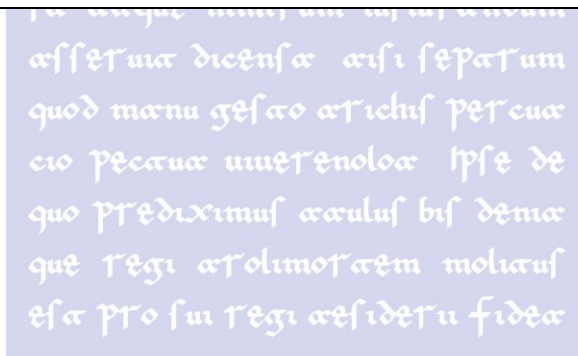 asseruit dicensa aisi septrum
quod manu gesto arichis percua
cio pectua uiuerenoloa Ipse de
quo prediximus aaulus bis denia
que regi arolimortem molitus
est pro sui regi aesiderii fidea